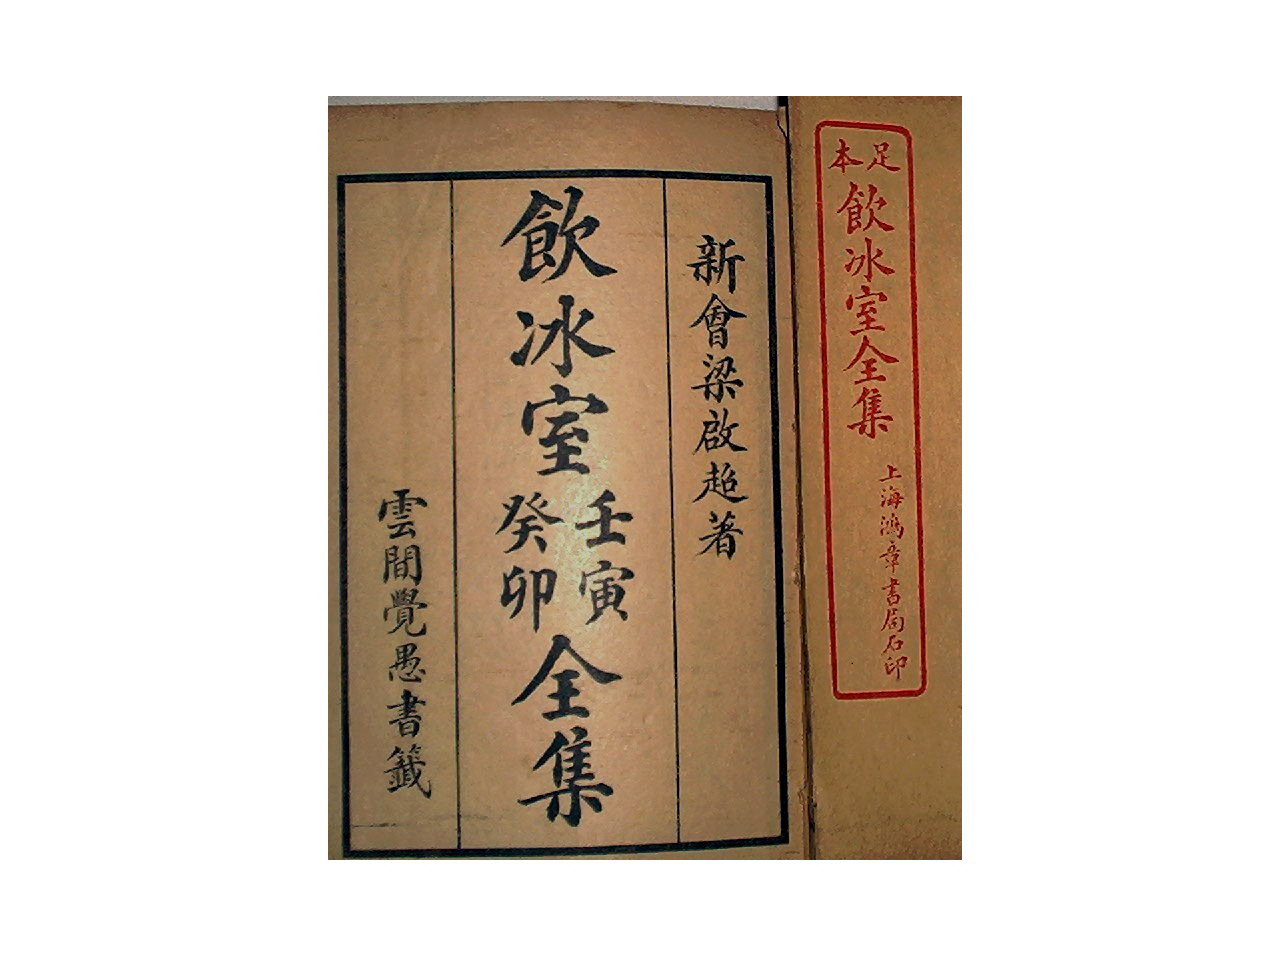 足本
飲冰室全集
上海鴻章書局石印
新會梁啟超著
飲冰室壬寅癸卯全集
雲間覺愚書籤